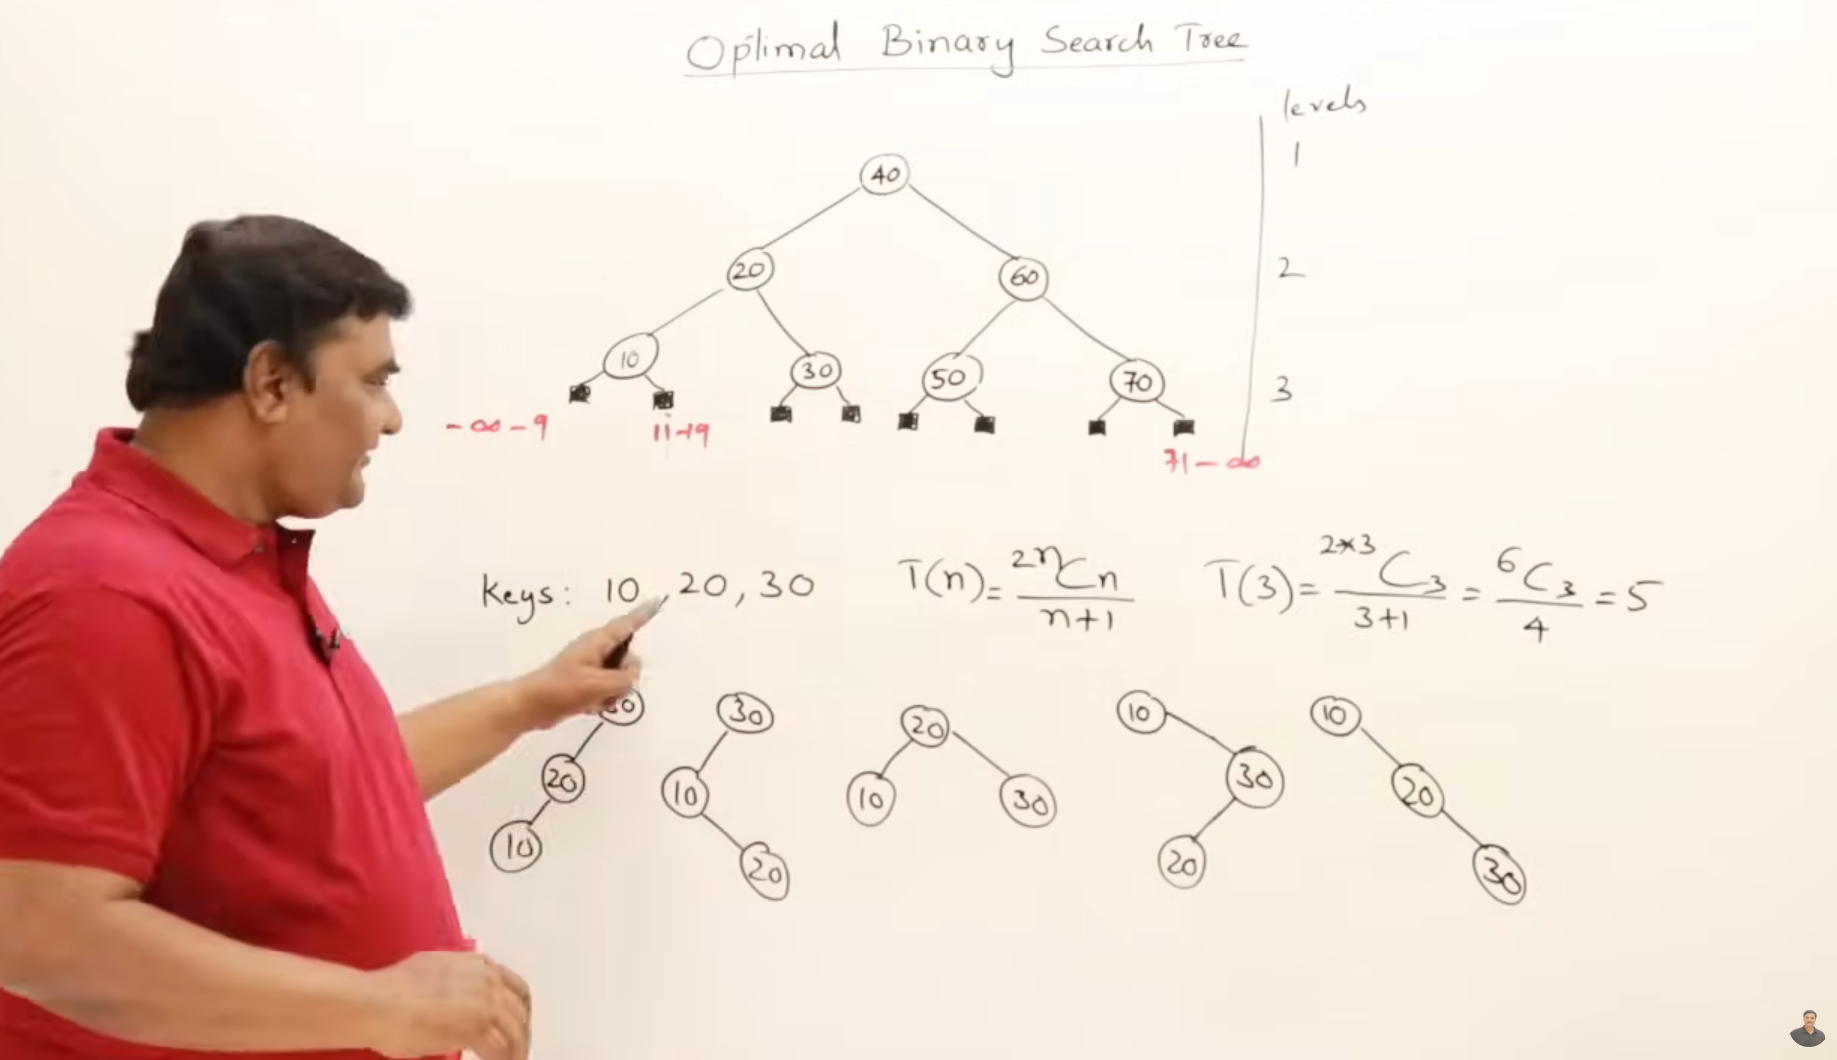 Optimal Binary Search Tree
levels
1
40
2
20
60
3
10
30
50
70
-∞-9
11-19
71-∞
Keys: 10, 20, 30
T(n) = 2nCn / n+1
T(3) = 2*3C3 / 3+1 = 6C3 / 4 = 5
30
30
20
10
10
20
10
10
30
30
20
10
20
20
30